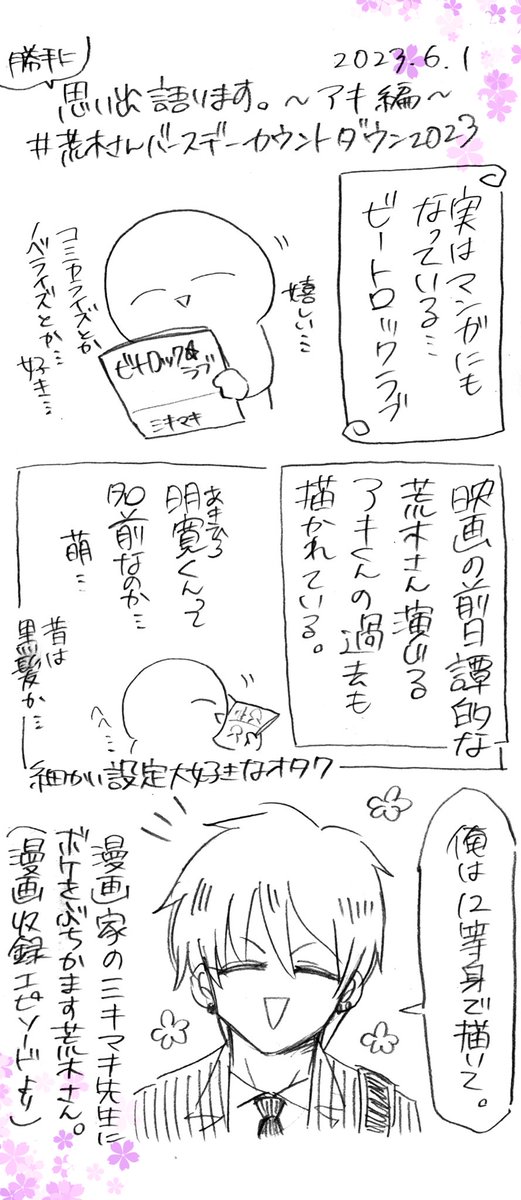 勝手に
2023.6.1
思い出語ります。～アキ編～
#荒木さんバースデーカウントダウン2023
実はマンガにも
なっている…
ビートロックラブ
嬉しい…
コミカライズとか
ノベライズとか…
好き…
ビートロック☆
ラブ
ミキマキ
映画の前日譚的な
荒木さん演じる
アキくんの過去も
描かれている。
あきひろ
明寛くんって
名前なのか…
萌…
昔は
黒髪か…
へへ…
細かい設定大好きなオタク
俺は12等身で描いて。
漫画家のミキマキ先生に
ボケをぶちかます荒木さん。
(漫画収録エピソードより)